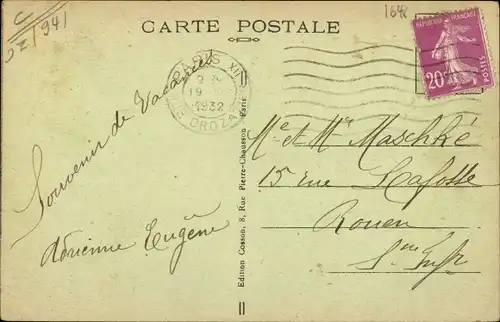 CARTE POSTALE
RÉPUBLIQUE FRANÇAISE
20c
POSTES
PARIS XII
19
1932
Souvenir de Vacances
Adrienne Eugène
Edition Cosson, 8, Rue Pierre-Chausson - Paris
Me et Mr Maschké
15 rue Lafosse
Rouen
S. Infr